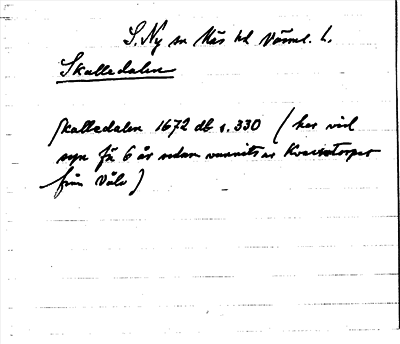 S. Ny sn Näs hd Värml. l.
Skalledalen
Skalledalen 1672 db s. 330 (har vid
syn för 6 år sedan vunnits av Kvarntorpet
från Väla)